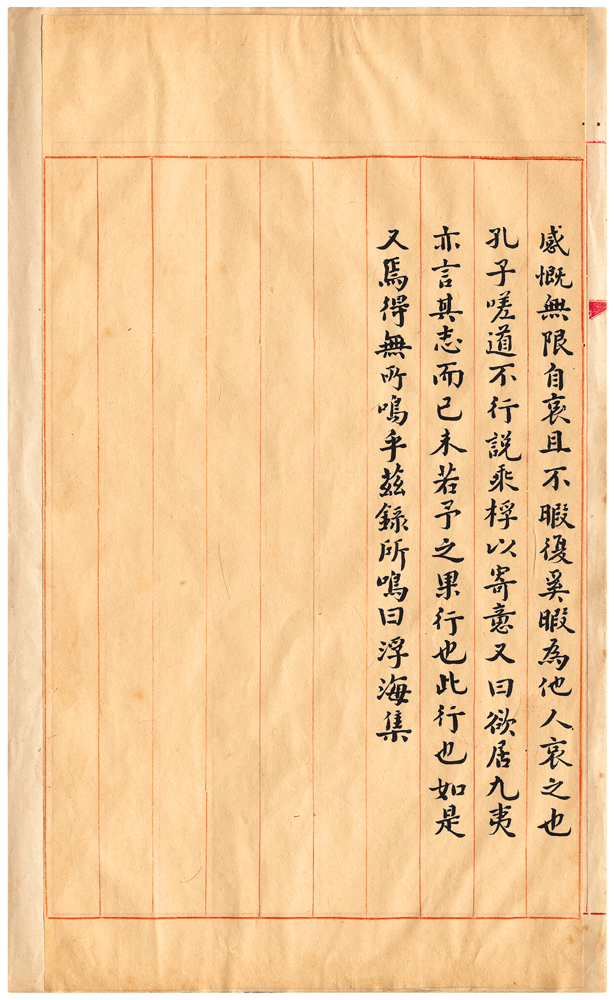 感慨無限自哀且不暇復奚暇為他人哀之也
孔子嗟道不行説乘桴以寄意又曰欲居九夷
亦言其志而已未若予之果行也此行也如是
又焉得無所鳴乎茲錄所鳴曰浮海集